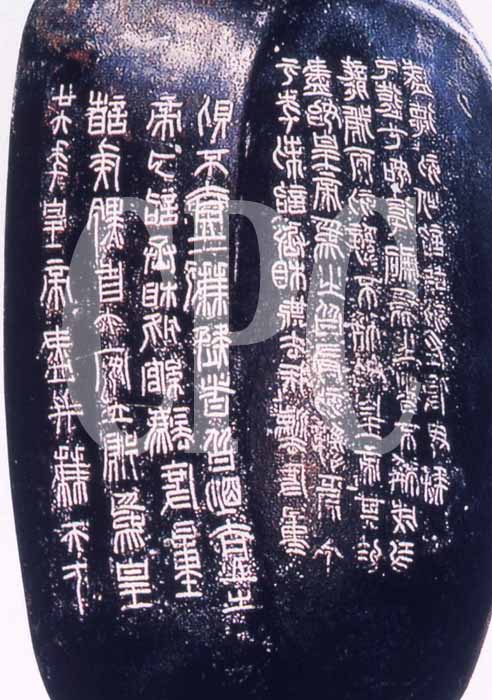 廿六年皇帝盡并兼天下
諸侯黔首大安立號爲皇
帝乃詔丞相狀綰灋度量
則不壹歉疑者皆明壹之
元年制詔丞相斯去疾灋度量
盡始皇帝爲之皆有刻辭焉今
襲號而刻辭不稱始皇帝其於
久遠也如後嗣爲之者不稱成
功盛德刻此詔故刻左使毋疑
CPC